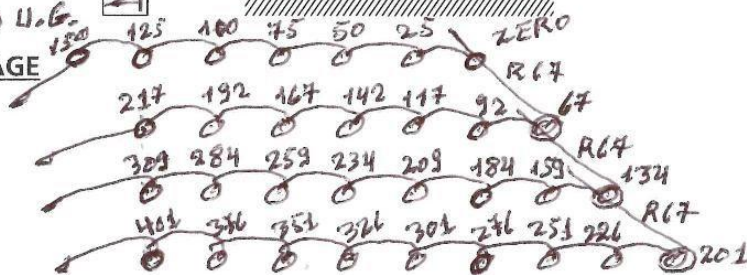 U.G.
AGE
150 125 100 75 50 25 ZERO
R67
217 192 167 142 117 92 67
R67
309 284 259 234 209 184 159 134
R67
401 376 351 326 301 276 251 226 201